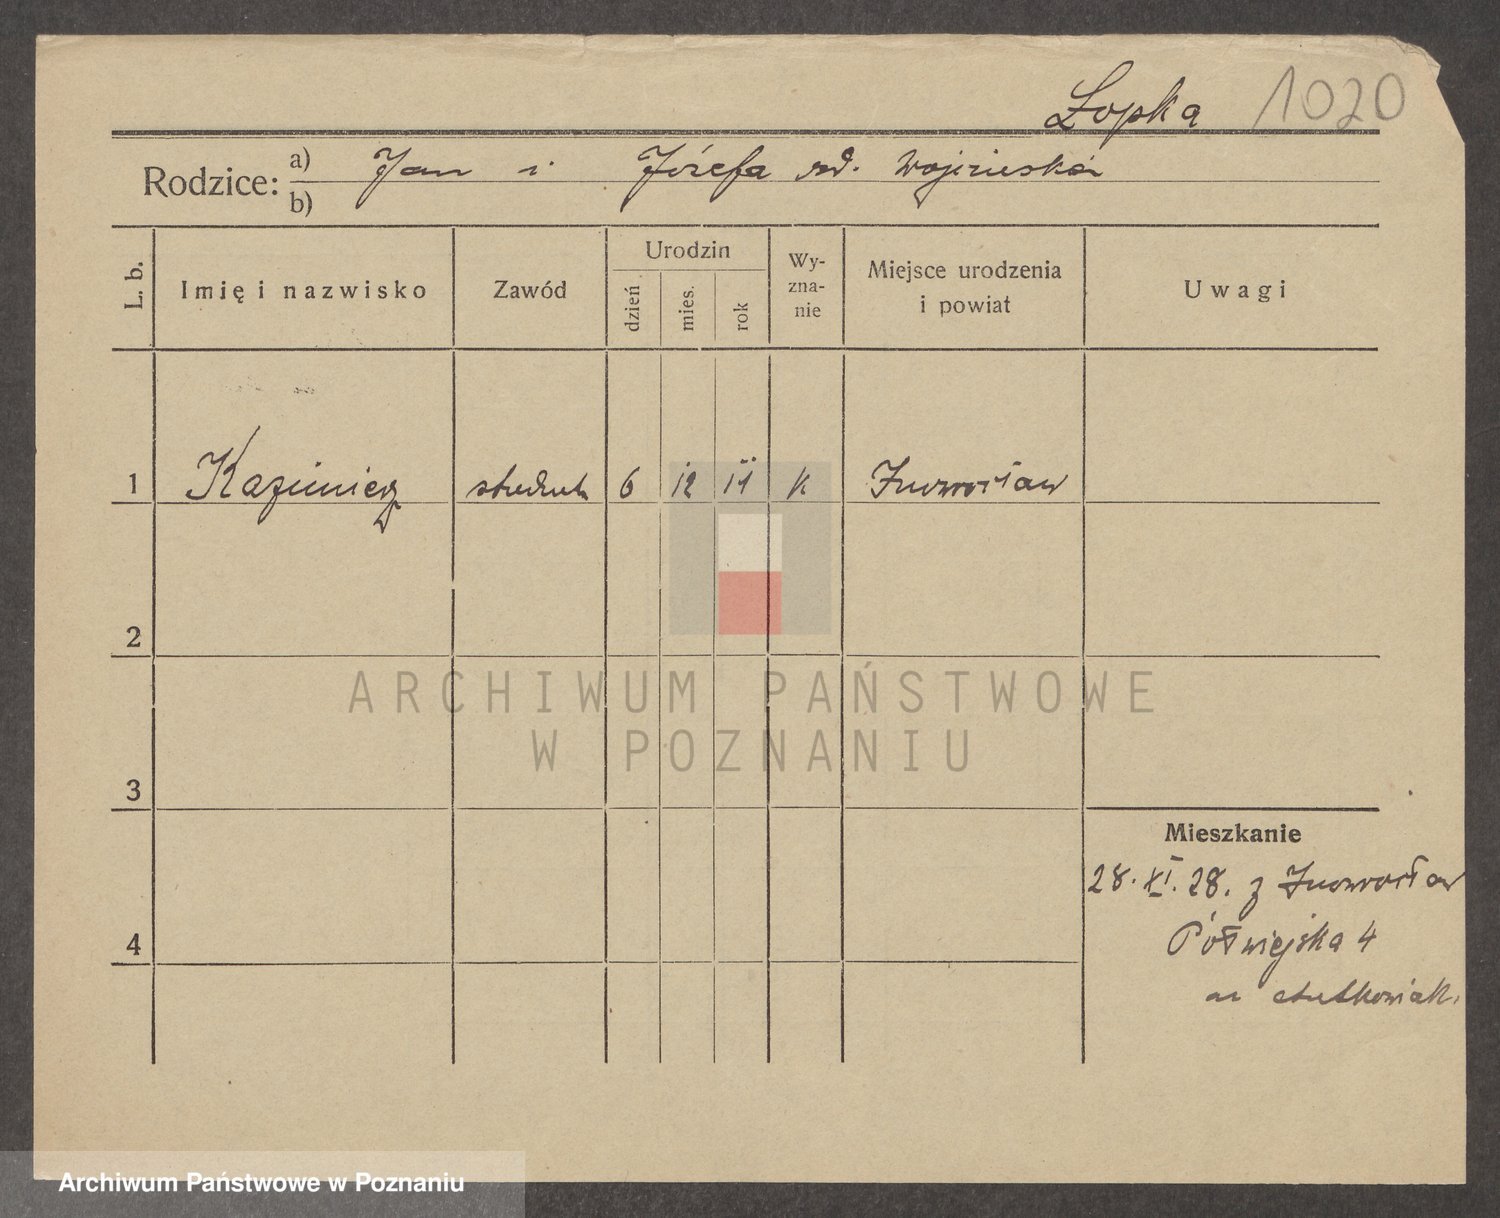 Łopka 1020
Rodzice: a) Jan i Józefa
b)
L. b.
Imię i nazwisko
Zawód
Urodzin
dzień
mies.
rok
Wy-
zna-
nie
Miejsce urodzenia
i powiat
Uwagi
1 Kazimierz student 6 12 11 k Inowrocław
2
3
4
Mieszkanie
28. XI. 28. z Inowrocław
Półwiejska 4
ARCHIWUM PAŃSTWOWE
W POZNANIU
Archiwum Państwowe w Poznaniu